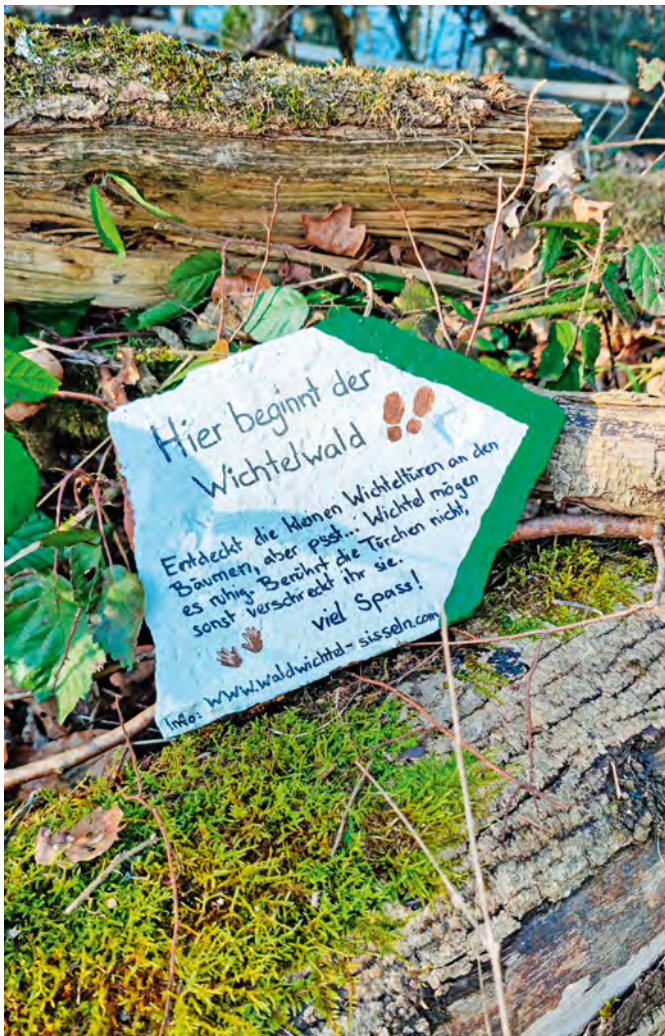 Hier beginnt der
Wichtelwald
Entdeckt die kleinen Wichteltüren an den
Bäumen, aber psst... Wichtel mögen
es ruhig. Berührt die Türchen nicht,
sonst verschreckt ihr sie.
viel Spass!
Info: www.waldwichtel-sisseln.com